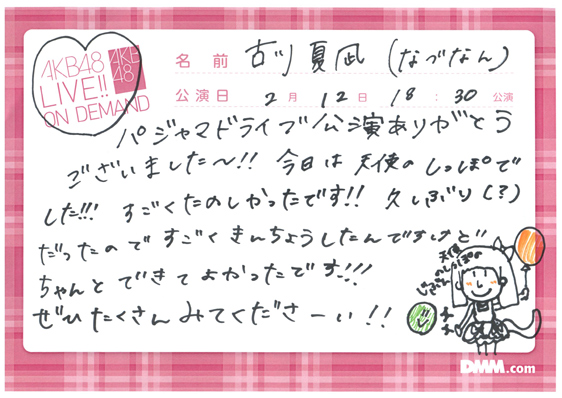 AKB48
LIVE!!
ON DEMAND
AKB
48
名前 古川夏凪 (なづなん)
公演日 2月 12日 18:30 公演
パジャマドライブ公演ありがとう
ございました〜!! 今日は天使のしっぽで
した!!! すごくたのしかったです!! 久しぶり(?)
だったのですごくきんちょうしたんですけど
ちゃんとできてよかったです!!!
ぜひたくさんみてくださーい!!
天使
のしっぽの
DMM.com